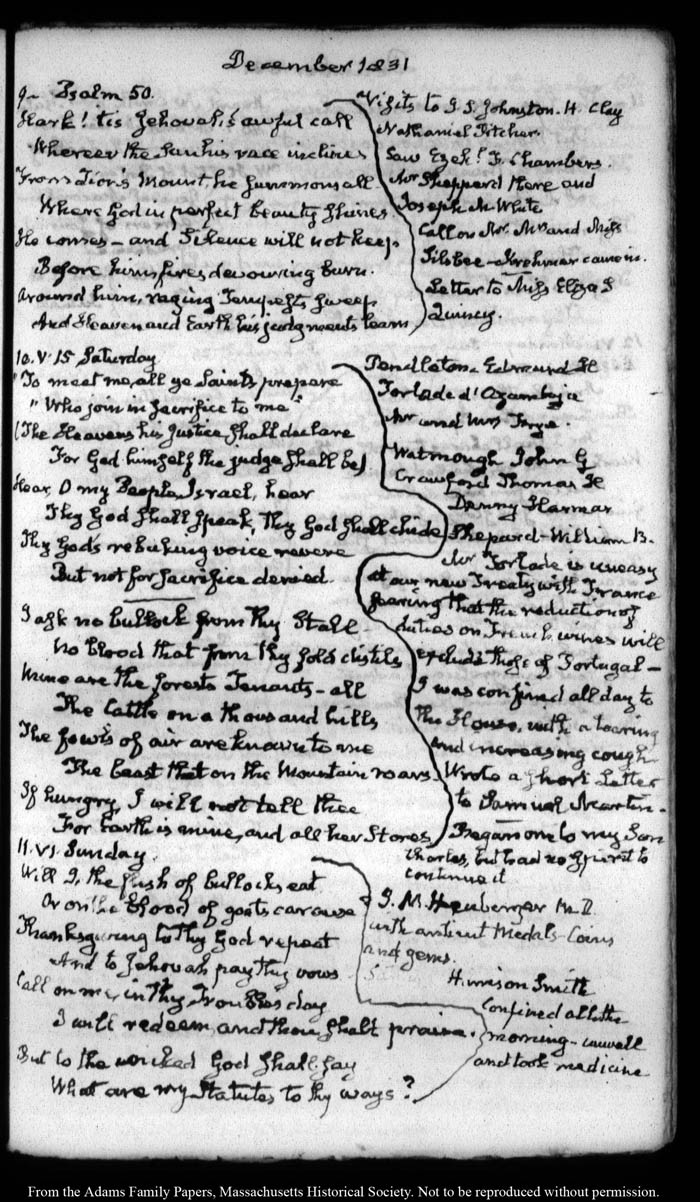 December 1831
9 – Psalm 50.
Hark! tis Jehovah's awful call
Whereer the Sun his race inclines
From Zion's Mount, he summons all
Where God in perfect beauty shines
He comes – and Silence will not keep
Before him fires devouring burn.
Around him, raging Tempests sweep
And Heaven and Earth his judgments learn
Visits to J. S. Johnston. H. Clay
Nathaniel Pitcher.
Saw Ezekl. F. Chambers.
Mr Sheppard there and
Joseph M. White
Call on Mr. Mrs and Miss
Silsbee – Krehmer came in.
Letter to Miss Eliza S
Quincy.
10. V. 15 Saturday
"To meet me, all ye Saints prepare
"Who join in Sacrifice to me"
(The Heavens his Justice shall declare
For God himself the judge shall be)
Hear, O my People, Israel, hear
Thy God shall speak, thy God shall chide
Thy God's rebuking voice revere
But not for Sacrifice denied.
I ask no bullock from thy Stall –
No blood that from thy folds distils
Mine are the forests Tenants – all
The Cattle on a thousand hills
The fowls of air are known to me
The beast that on the Mountain roars
If hungry, I will not tell thee
For Earth is mine, and all her Stores
Pendleton – Edmund H
Torlade d'Azambuja
Mr and Mrs
Watmough John G
Crawford Thomas H
Denny Harmar
Shepard – William B.
Mr Torlade is uneasy
at our new Treaty with France
fearing that the reduction of
duties on French wines will
exclude those of Portugal –
I was confined all day to
the House, with a tearing
and increasing cough
Wrote a short Letter
to Samuel Martin.
Began one to my Son
Charles, but had no Spirit to
continue it
11. VI. Sunday.
Will I, the flesh of bullocks eat
Or on the blood of goats carouse
Thanksgiving to thy God repeat
And to Jehovah pay thy vows
Call on me, in thy Troubles day
I will redeem, and thou shalt praise.
But to the wicked God shall say
What are my Statutes to thy ways?
J. M. M. D.
with antient Medals – Coins
and gems.
Harrison Smith
Confined all the
morning – unwell
and took medicine
From the Adams Family Papers, Massachusetts Historical Society. Not to be reproduced without permission.